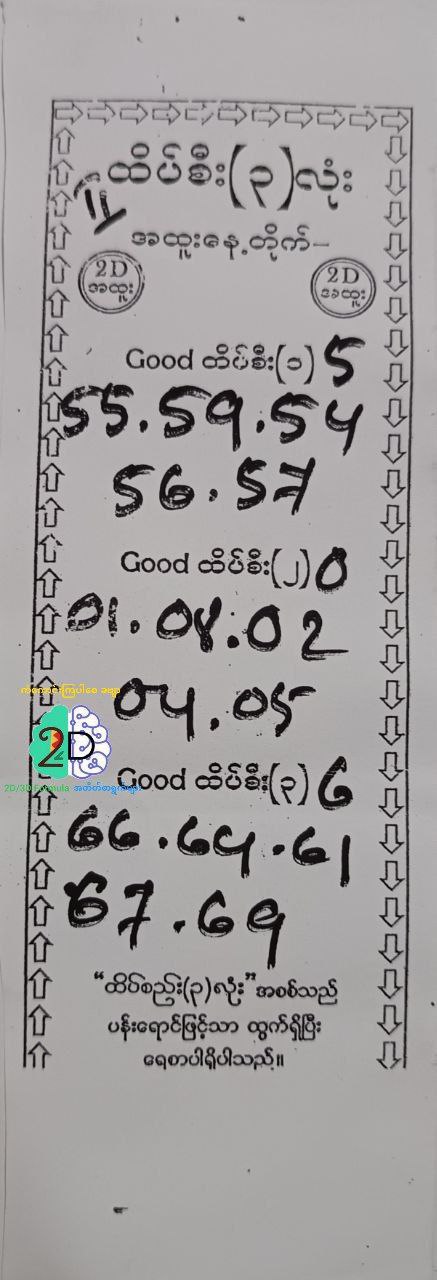 ထိပ်စီး(၃)လုံး
အထူးနေ့တိုက်–
2D
အထူး
2D
အထူး
Good ထိပ်စီး(၁) 5
55.59.54
56.57
Good ထိပ်စီး(၂) 0
01.08.02
04.05
ခများ
2D
2D/3D Formula
Good ထိပ်စီး(၃) 6
66.64.61
67.69
“ထိပ်စည်း(၃)လုံး” အစစ်သည်
ပန်းရောင်ဖြင့်သာ ထွက်ရှိပြီး
ရေစာပါရှိပါသည်။